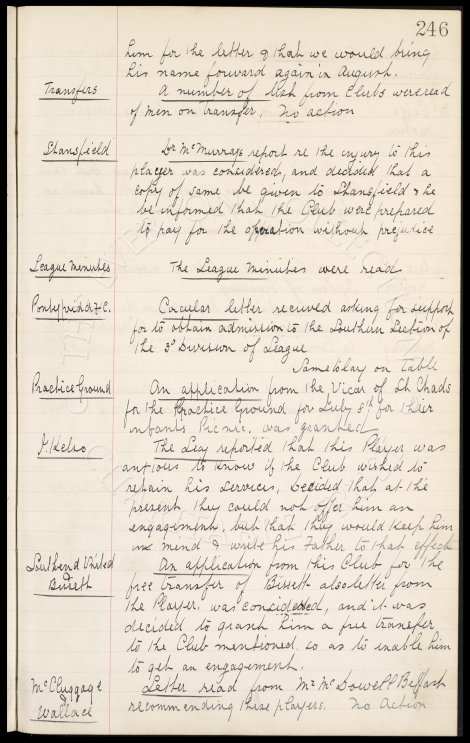 246
him for the letter & that we would bring
his name forward again in August.
Transfers
A number of lists from Clubs were read
of men on transfer. No action
Shansfield
Dr McMurrays report re the injury to this
player was considered, and decided that a
copy of same be given to Shansfield & he
be informed that the Club were prepared
to pay for the operation without prejudice
League Menutes
The League Minutes were read
Pontypridd F.C.
Circular letter received asking for support
for to obtain admission to the Southern Section of
the 3rd Division of League
Same to lay on table
Practice Ground
An application from the Vicar of St Chads
for the Practice Ground for July 8th for their
infants Picnic, was granted
J. Kelso
The Secy reported that this Player was
anxious to know if the Club wished to
retain his services, Decided that at the
present they could not offer him an
engagement, but that they would keep him
in mind & write his Father to that effect
Southend United
Birrett
An application from this Club for the
free transfer of Birrett also letter from
the Player, was considered, and it was
decided to grant him a free transfer
to the Club mentioned so as to enable him
to get an engagement.
McCluggage
&
Wallace
Letter read from Mr McDowell Belfast
recommending these players. No Action